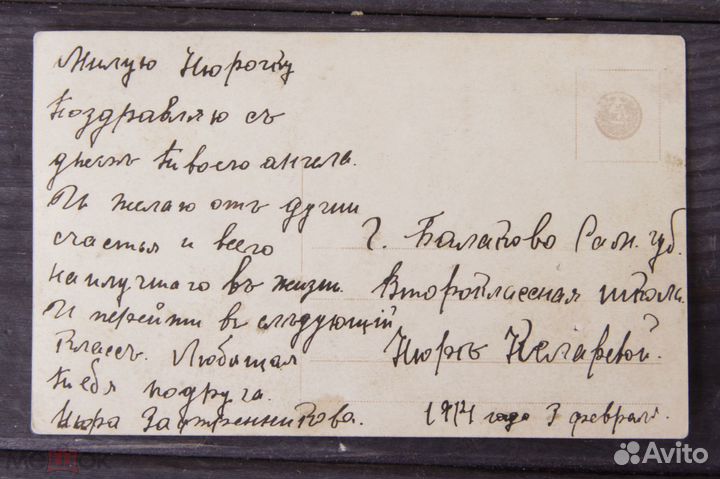 Милую Нюрочку
Поздравляю съ
днемъ твоего ангела.
И желаю отъ души
счастья и всего
наилучшаго въ жизни.
И перейти въ слѣдующій
классъ. Любящая
тебя подруга.
Нюра
г. Балаково Сам. губ.
Второклассная школа.
Нюрѣ Келаревой.
года 3 февраля
Avito